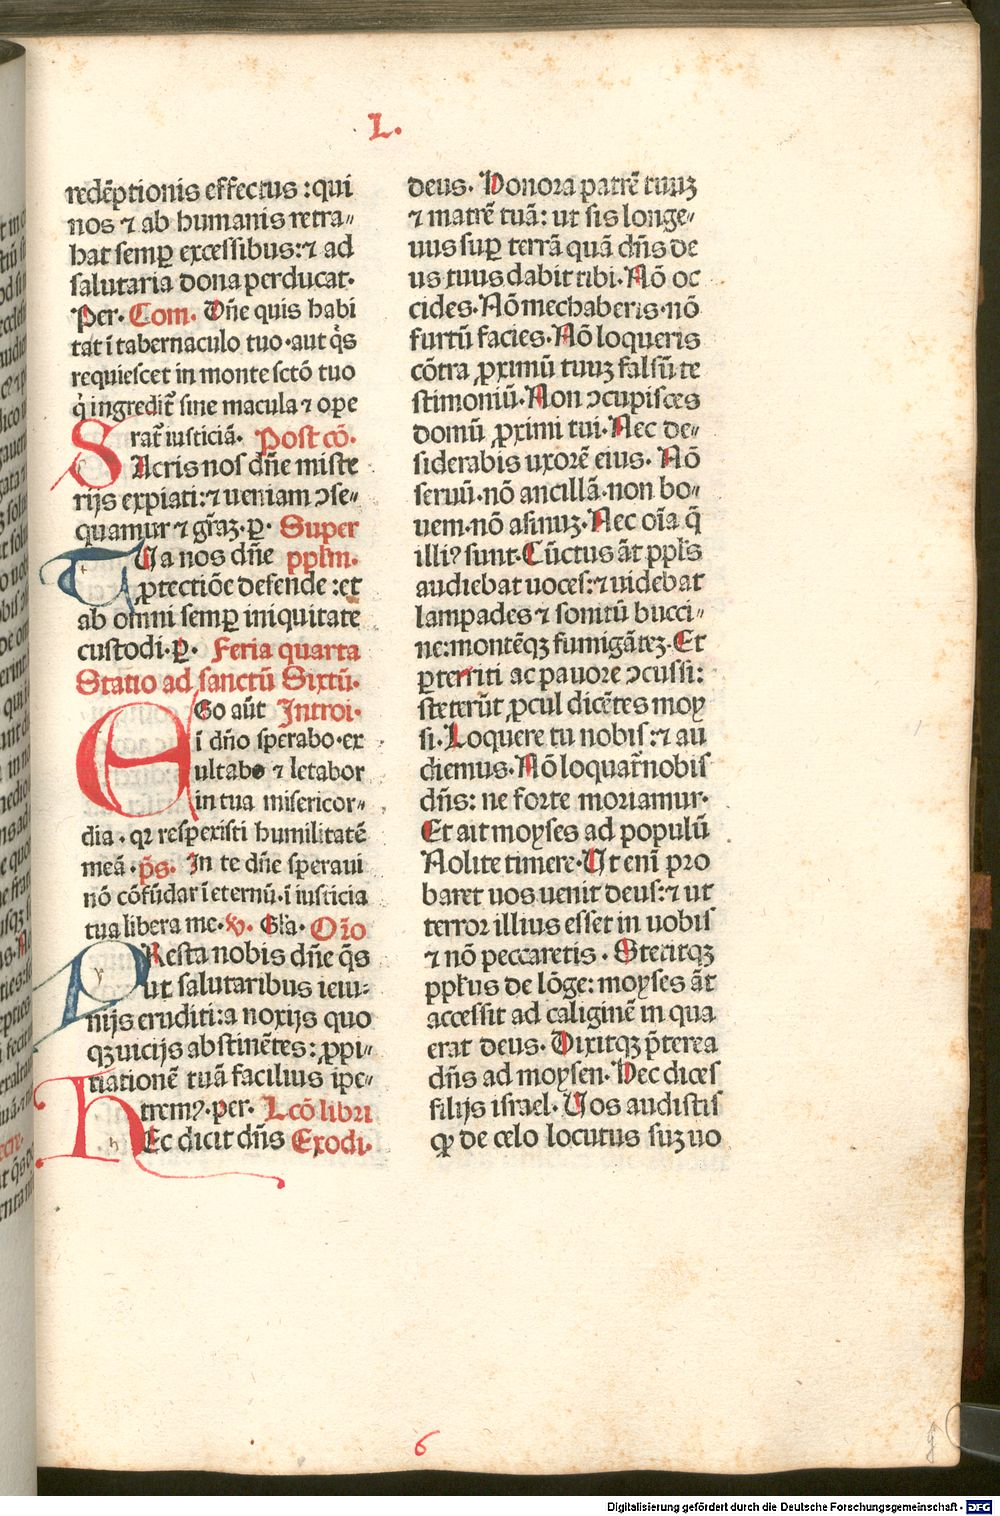 L.
redēptionis effectus : qui
nos ⁊ ab humanis retra⸗
hat semꝑ excessibus: ⁊ ad
salutaria dona perducat.
Per. Com. Dñe quis habi
tat ī tabernaculo tuo. aut q̇s
requiescet in monte sctō tuo
q̇ ingredit̄ sine macula ⁊ ope
rat̄ iusticiā. Post cō.
SAcris nos dñe miste
rijs expiati: ⁊ ueniam ɔse⸗
quamur ⁊ grāꝫ. ꝑ. Super
TUa nos dñe pplm̄.
ꝓtectiōe defende : et
ab omni semꝑ iniquitate
custodi. ꝑ. Feria quarta
Statio ad sanctū Sixtū.
EGo aūt Introi.
ī dño sperabo. ex
ultabo ⁊ letabor
in tua misericor⸗
dia. qꝛ respexisti humilitatē
meā. p̄s. In te dñe speraui
nō cōfūdar ī eternū. ī iusticia
tua libera me. v. Glā. Orīo
PResta nobis dñe q̄s
ut salutaribus ieiu⸗
nijs eruditi: a noxijs quo
qꝫ uicijs abstinētes: ꝓpi⸗
tiationē tuā facilius ipe⸗
tremꝰ. per. Lcō libri
HEc dicit dñs Exodi.
deus. Honora patrē tuuꝫ
⁊ matrē tuā: ut sis longe⸗
uus suꝑ terrā quā dñs de
us tuus dabit tibi. Nō oc
cides. Nō mechaberis. nō
furtū facies. Nō loqueris
cōtra ꝓximū tuuꝫ falsū te
stimoniū. Non ɔcupisces
domū ꝓximi tui. Nec de⸗
siderabis uxorē eius. Nō
seruū. nō ancillā. non bo⸗
uem. nō asinuꝫ. Nec oīa q̄
illiꝰ sunt. Cūctus āt ppl̄s
audiebat uoces: ⁊ uidebat
lampades ⁊ sonitū bucci⸗
ne: montēqꝫ fumigātēꝫ. Et
ꝑterriti ac pauore ɔcussi:
steterūt ꝓcul dicētes moy
si. Loquere tu nobis: ⁊ au
diemus. Nō loquat̄ nobis
dñs: ne forte moriamur.
Et ait moyses ad populū
Nolite timere. Ut enī pro
baret uos uenit deus: ⁊ ut
terror illius esset in uobis
⁊ nō peccaretis. Stetitqꝫ
ppl̄us de lōge: moyses āt
accessit ad caliginē in qua
erat deus. Dixitqꝫ p̄terea
dñs ad moysen. Hec dices
filijs israel. Uos audistis
ꝙ de celo locutus suꝫ uo
6
Digitalisierung gefördert durch die Deutsche Forschungsgemeinschaft - DFG